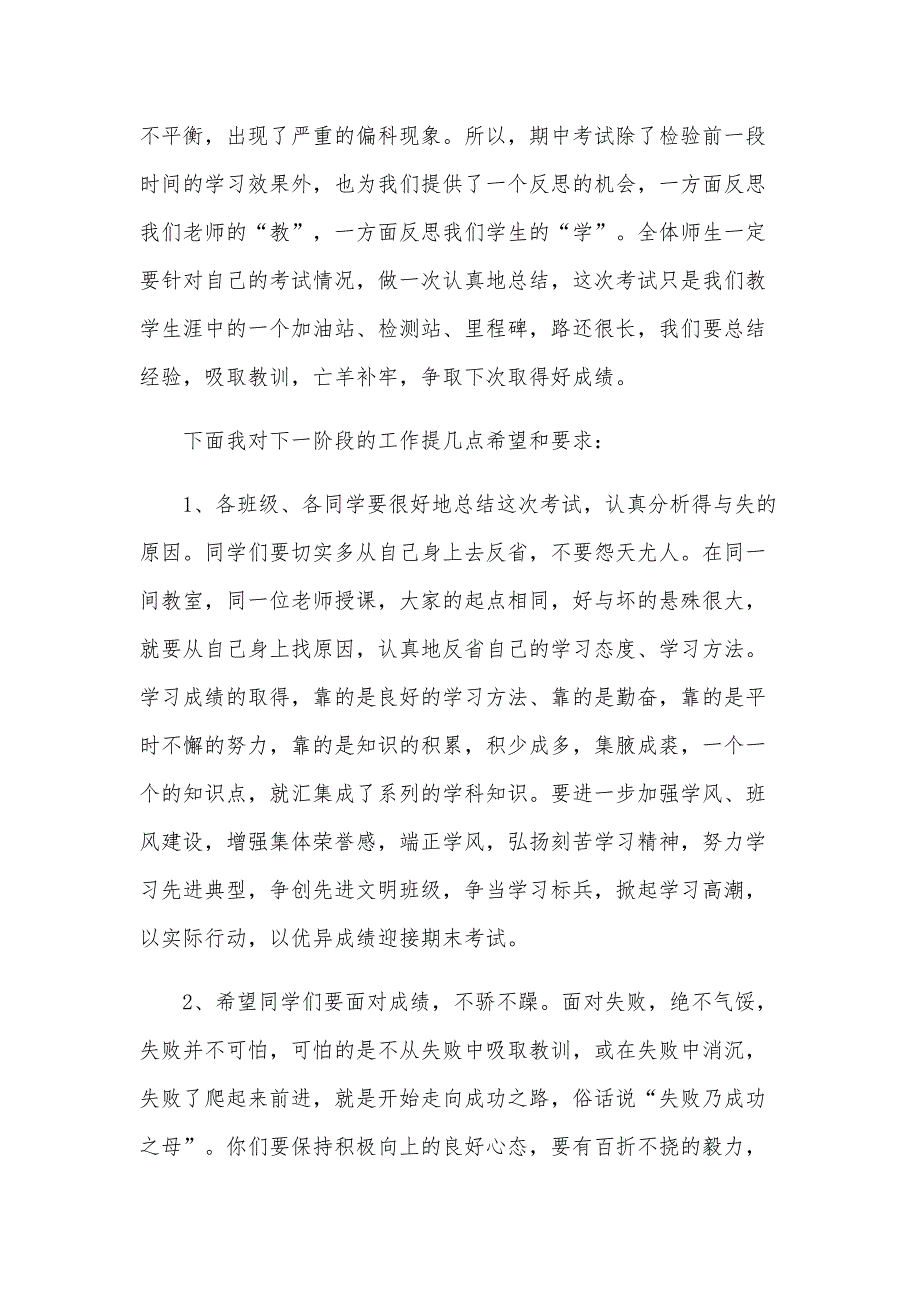 不平衡，出现了严重的偏科现象。所以，期中考试除了检验前一段
时间的学习效果外，也为我们提供了一个反思的机会，一方面反思
我们老师的“教”，一方面反思我们学生的“学”。全体师生一定
要针对自己的考试情况，做一次认真地总结，这次考试只是我们教
学生涯中的一个加油站、检测站、里程碑，路还很长，我们要总结
经验，吸取教训，亡羊补牢，争取下次取得好成绩。
下面我对下一阶段的工作提几点希望和要求：
1、各班级、各同学要很好地总结这次考试，认真分析得与失的
原因。同学们要切实多从自己身上去反省，不要怨天尤人。在同一
间教室，同一位老师授课，大家的起点相同，好与坏的悬殊很大，
就要从自己身上找原因，认真地反省自己的学习态度、学习方法。
学习成绩的取得，靠的是良好的学习方法、靠的是勤奋，靠的是平
时不懈的努力，靠的是知识的积累，积少成多，集腋成裘，一个一
个的知识点，就汇集成了系列的学科知识。要进一步加强学风、班
风建设，增强集体荣誉感，端正学风，弘扬刻苦学习精神，努力学
习先进典型，争创先进文明班级，争当学习标兵，掀起学习高潮，
以实际行动，以优异成绩迎接期末考试。
2、希望同学们要面对成绩，不骄不躁。面对失败，绝不气馁，
失败并不可怕，可怕的是不从失败中吸取教训，或在失败中消沉，
失败了爬起来前进，就是开始走向成功之路，俗话说“失败乃成功
之母”。你们要保持积极向上的良好心态，要有百折不挠的毅力，